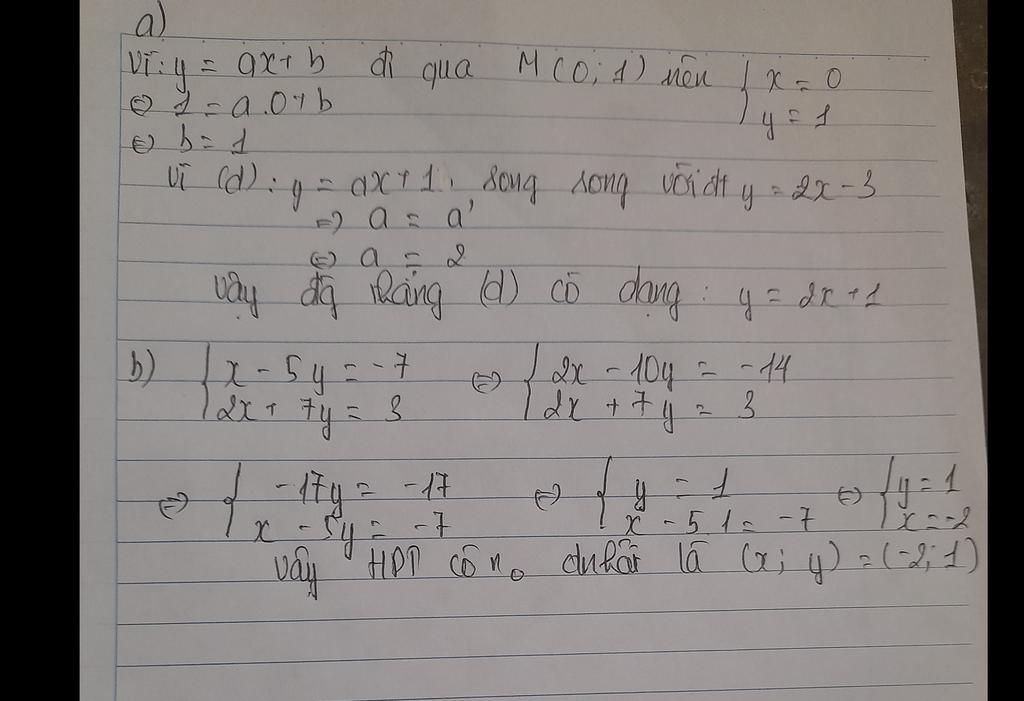 a)
Vì: y = ax + b đi qua M(0; 1) nên { x = 0
⇔ 1 = a.0 + b y = 1
⇔ b = 1
Vì (d): y = ax + 1. song song với đt y = 2x - 3
⇒ a = a'
⇔ a = 2
Vậy đg thẳng (d) có dạng: y = 2x + 1
b) { x - 5y = -7 ⇔ { 2x - 10y = -14
2x + 7y = 3 2x + 7y = 3
⇔ { -17y = -17 ⇔ { y = 1 ⇔ { y = 1
x - 5y = -7 x - 5 1 = -7 x = -2
Vậy HPT có no duy nhất là (x; y) = (-2; 1)